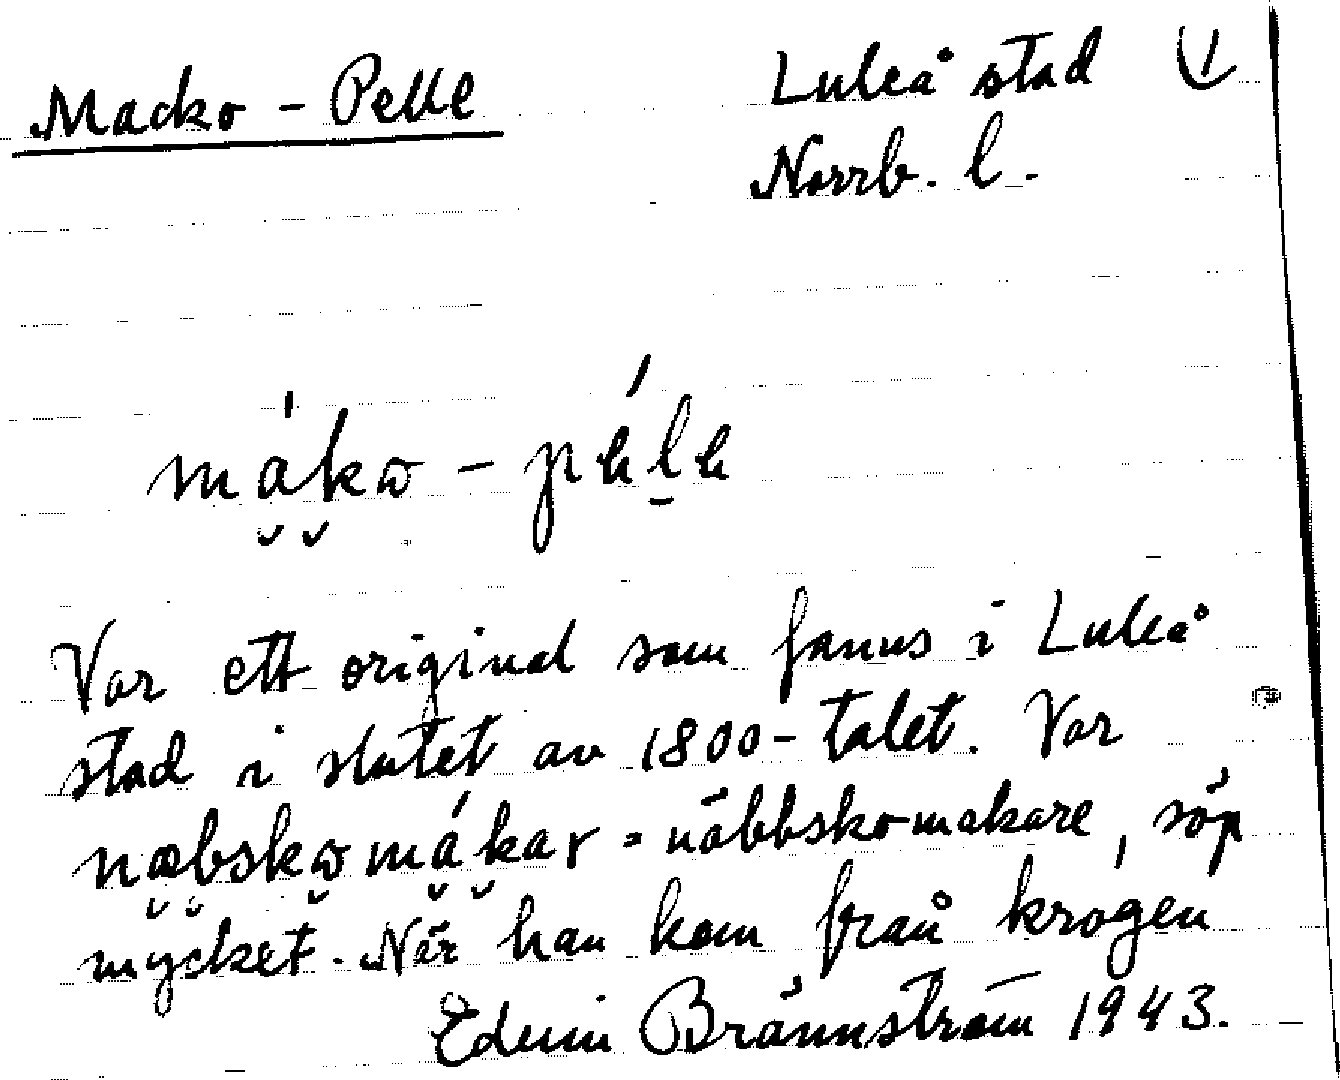 Macko - Pelle
Luleå stad
Norrb. l.
Var ett original som fanns i Luleå
stad i slutet av 1800-talet. Var
= näbbskomakare, söp
mycket. När han kom från krogen
Edwin Brännström 1943.